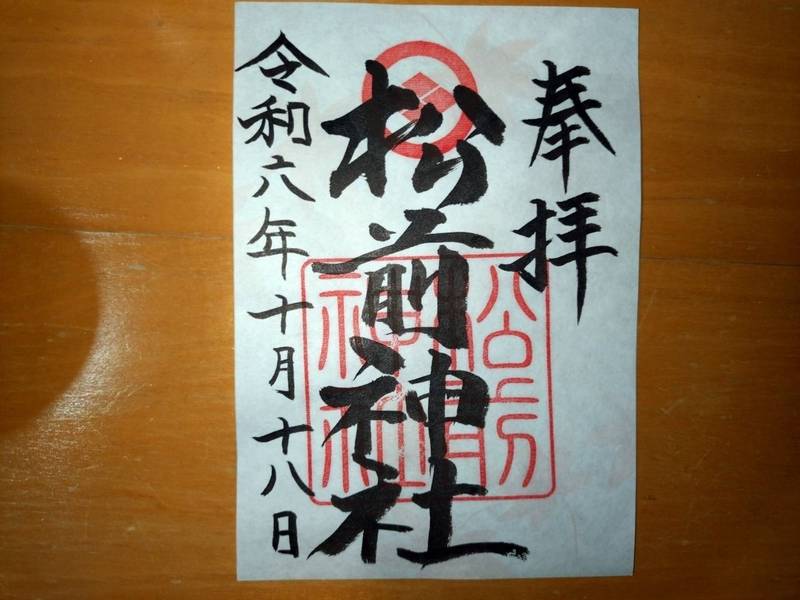 奉拝
松前神社
松前神社
令和六年十月十八日